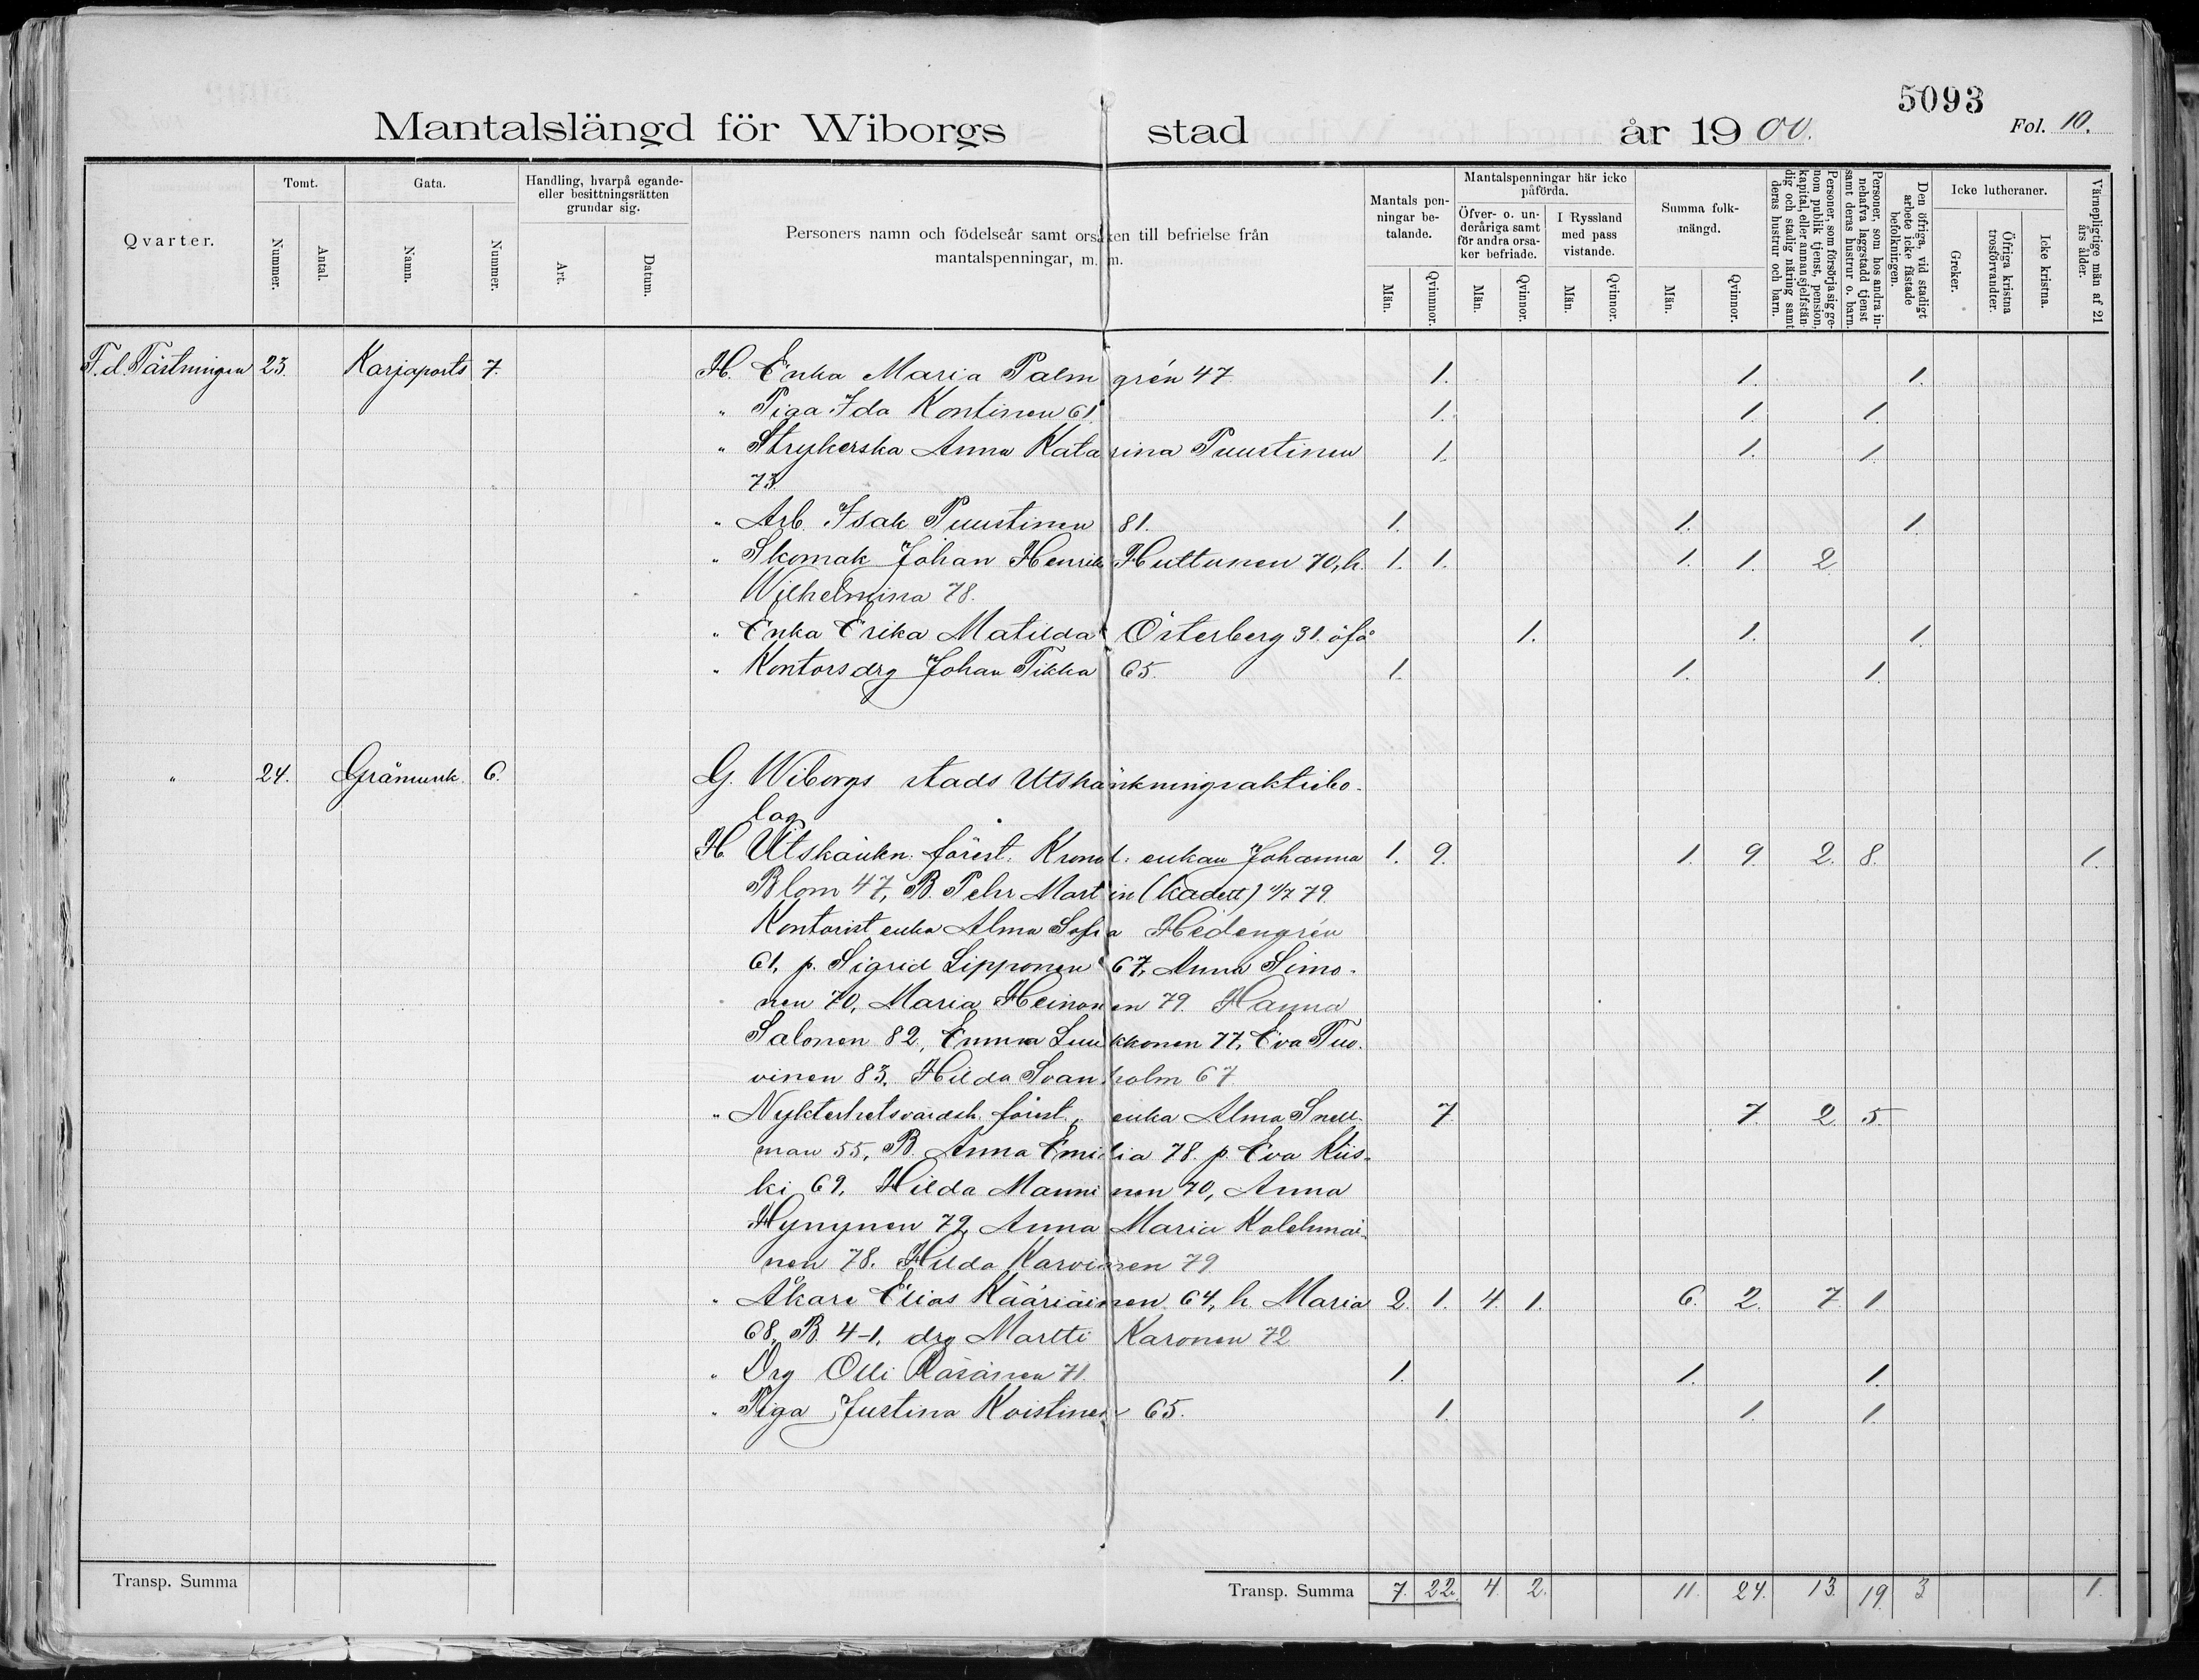 5093
Mantalslängd för Wiborgs stad år 1900. Fol. 10.
Qvarter.
Tomt.
Nummer.
Antal.
Gata.
Namn.
Nummer.
Handling, hvarpå egande-
eller besittningsrätten
grundar sig.
Art.
Datum.
Personers namn och födelseår samt orsaken till befrielse från
mantalspenningar, m. m.
Mantals pen-
ningar be-
talande.
Män.
Qvinnor.
Mantalspenningar här icke
påförda.
Öfver- o. un-
deråriga samt
för andra orsa-
ker befriade.
Män.
Qvinnor.
I Ryssland
med pass
vistande.
Män.
Qvinnor.
Summa folk-
mängd.
Män.
Qvinnor.
Personer, som försörja sig ge-
nom publik tjenst, pension,
kapital, eller annan sjelfstän-
dig och stadig näring samt
deras hustrur och barn.
Personer, som hos andra in-
nehafva laggstadd tjenst
samt deras hustrur o. barn.
Den öfriga, vid stadigt
arbete icke fästade
befolkningen.
Icke lutheraner.
Greker.
Öfriga kristna
trosförvandter.
Icke kristna.
Värnepligtige män af 21
års ålder.
F.d. Fästningen 23. Karjaports 7. H. Enka Maria Palmgrén 47. 1. 1. 1.
" Piga Ida Kontinen 61. 1. 1. 1.
" Strykerska Anna Katarina Puustinen 1. 1. 1.
73.
" Arb. Isak Puustinen 81. 1. 1. 1.
" Skomak Johan Henrik Huttunen 70, h. 1. 1. 1. 1. 2.
Wilhelmina 78.
" Enka Erika Matilda Österberg 31. öfå 1. 1. 1.
" Kontorsdrg Johan Tikka 65. 1. 1. 1.
" 24. Gråmunk. 6. G. Wiborgs stads Utskänkningsaktiebo-
lag
H. Utskänkn. först. Kronol: enkan Johanna 1. 9. 1. 9. 2. 8. 1.
Blom 47, B. Pehr Martin (kadett) 79.
Kontorist enka Alma Sofia Hedengrén
61, p. Sigrid Lipponen 67, Anna Simo-
nen 70, Maria Heinonen 79. Hanna
Salonen 82, Emma Luukkonen 77, Eva Tuo-
vinen 83, Hilda Svanholm 67
" Nykterhetsvärdsh. först. enka Alma Snell- 7. 7. 2. 5.
man 55, B. Anna Emilia 78. p. Eva Kiis-
ki 69, Hilda Manninen 70, Anna
Hynynen 72, Anna Maria Kolehmai-
nen 78. Hilda Karvinen 79
" Åkare Elias Kääriäinen 64, h. Maria 2. 1. 4. 1. 6. 2. 7. 1.
68, B. 4-1, drg Martti Karonen 72
" Drg Olli Räsänen 71. 1. 1. 1.
" Piga Justina Koistinen 65. 1. 1. 1.
Transp. Summa Transp. Summa 7. 22. 4. 2. 11. 24. 13. 19. 3 1.